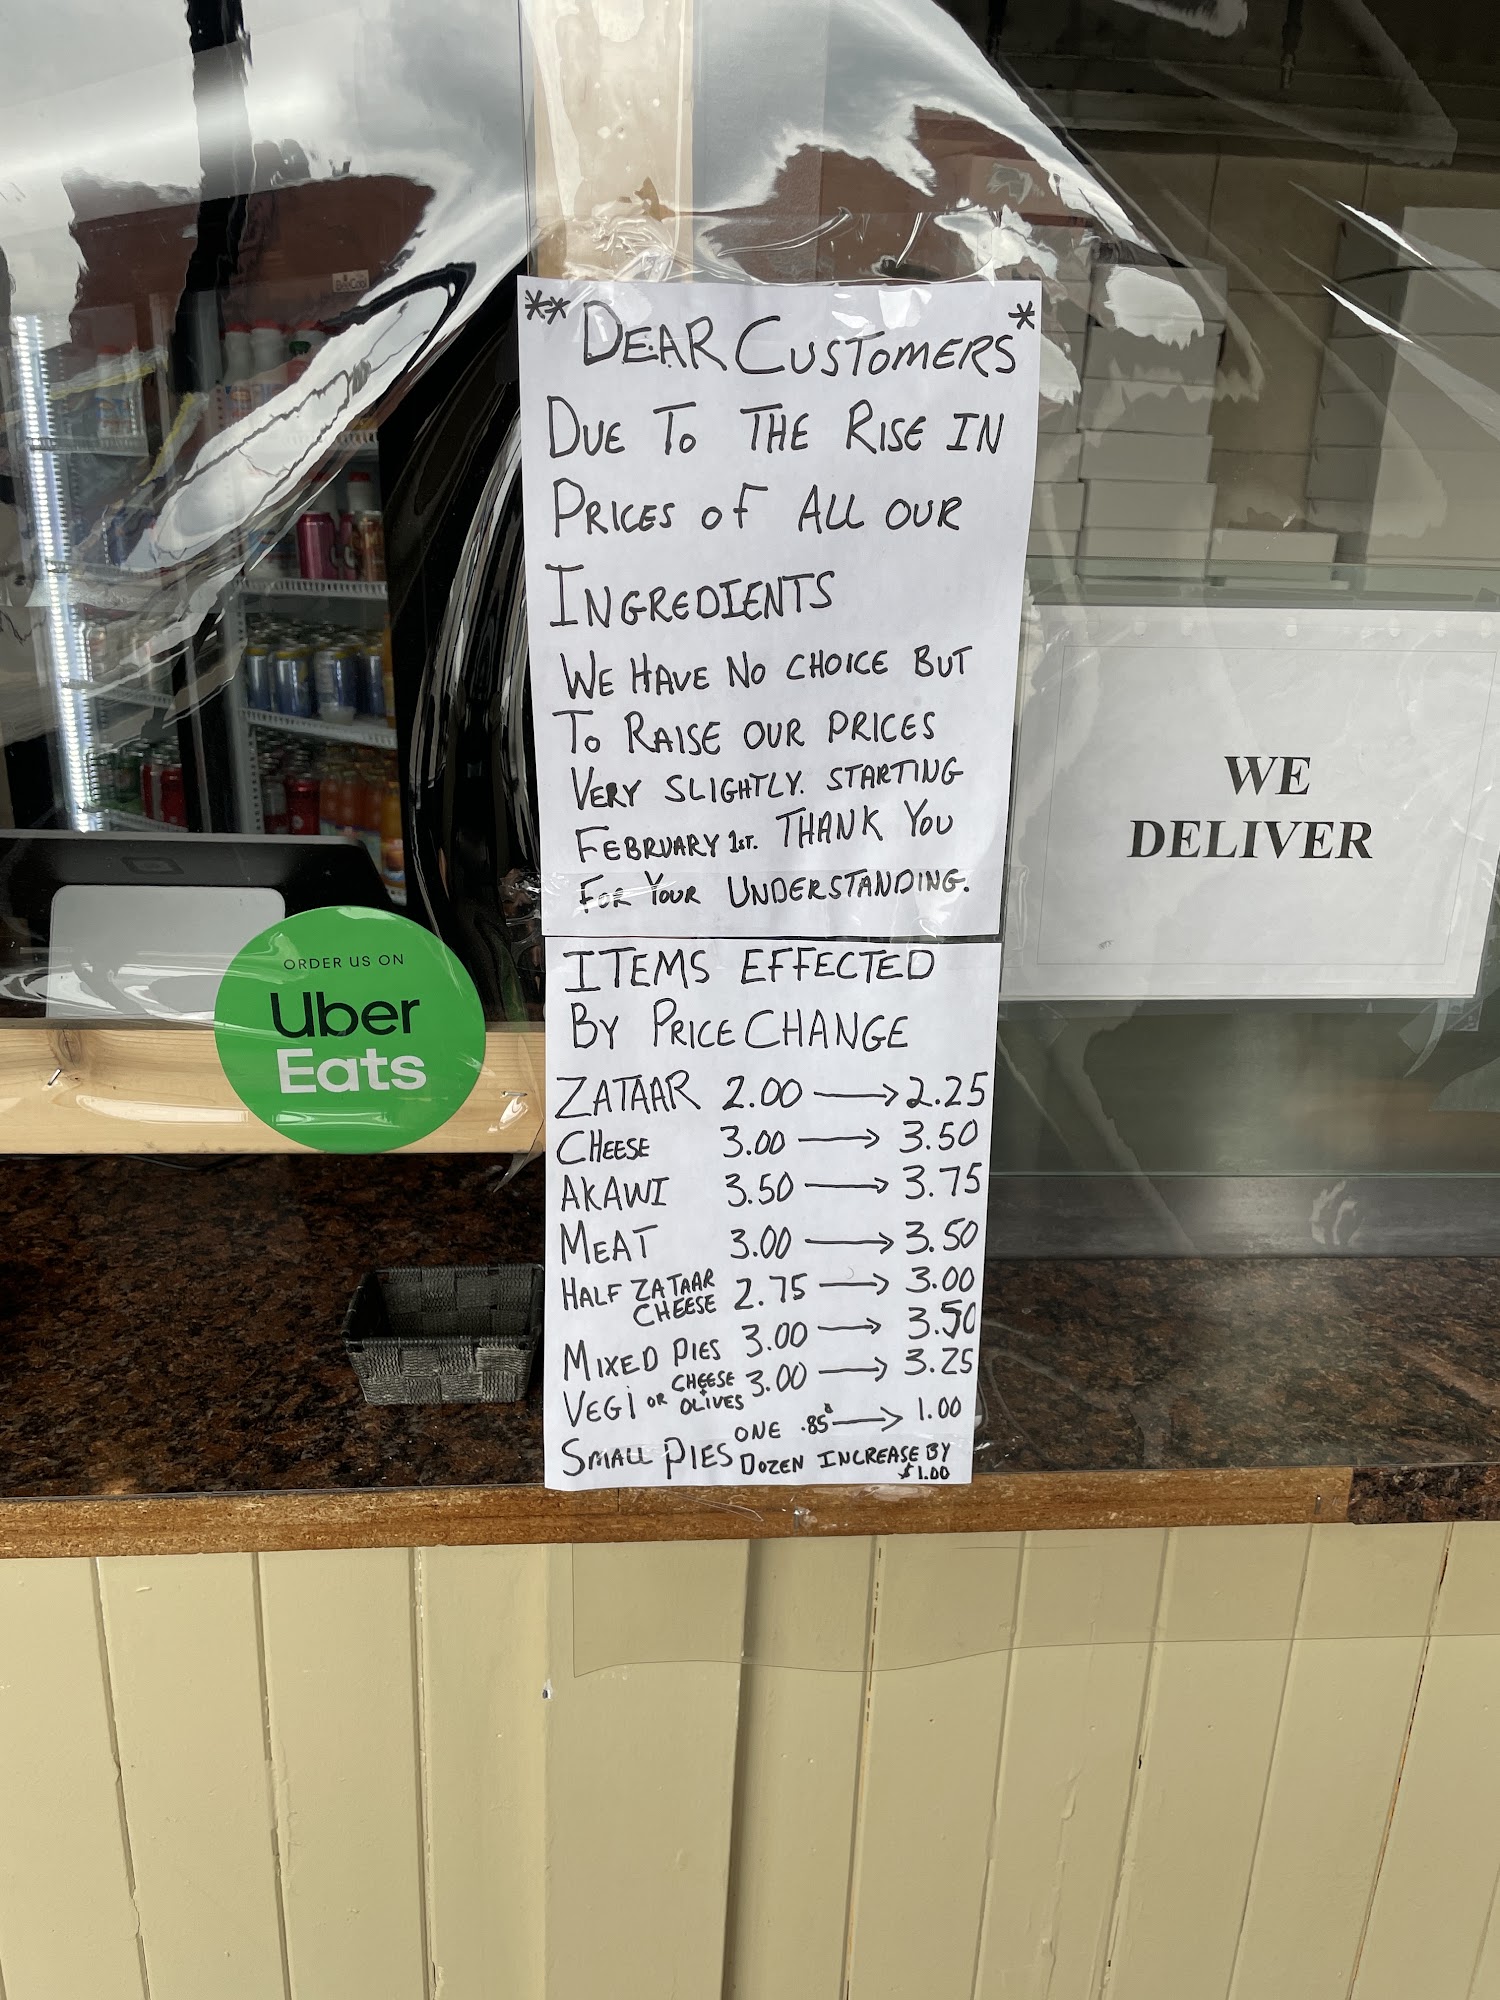 ** DEAR CUSTOMERS *
DUE TO THE RISE IN
PRICES OF ALL OUR
INGREDIENTS
WE HAVE NO CHOICE BUT
TO RAISE OUR PRICES
VERY SLIGHTLY. STARTING
FEBRUARY 1ST. THANK YOU
FOR YOUR UNDERSTANDING.
ITEMS EFFECTED
BY PRICE CHANGE
ZATAAR 2.00 → 2.25
CHEESE 3.00 → 3.50
AKAWI 3.50 → 3.75
MEAT 3.00 → 3.50
HALF ZATAAR CHEESE 2.75 → 3.00
MIXED PIES 3.00 → 3.50
VEGI OR CHEESE + OLIVES 3.00 → 3.25
SMALL PIES ONE .85¢ → 1.00
DOZEN INCREASE BY
$1.00
WE
DELIVER
ORDER US ON
Uber
Eats